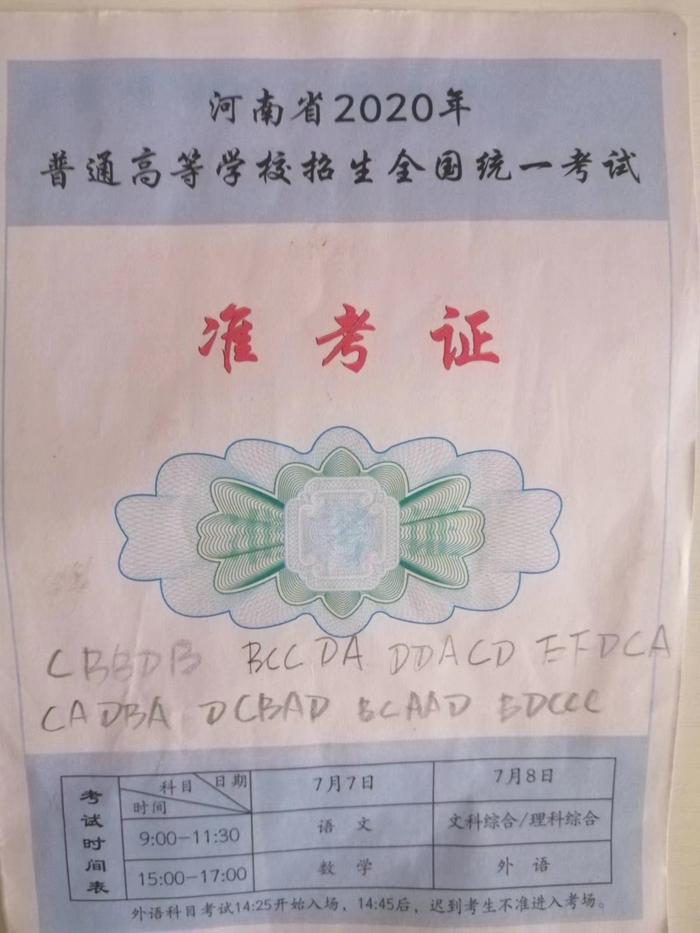 河南省2020年
普通高等学校招生全国统一考试
准考证
CBBDB BCCDA DDACD EFDCA
CADBA DCBAD BCAAD BDCCC
考试时间表 科目 日期 时间 7月7日 7月8日
9:00-11:30 语文 文科综合/理科综合
15:00-17:00 数学 外语
外语科目考试14:25开始入场，14:45后，迟到考生不准进入考场。